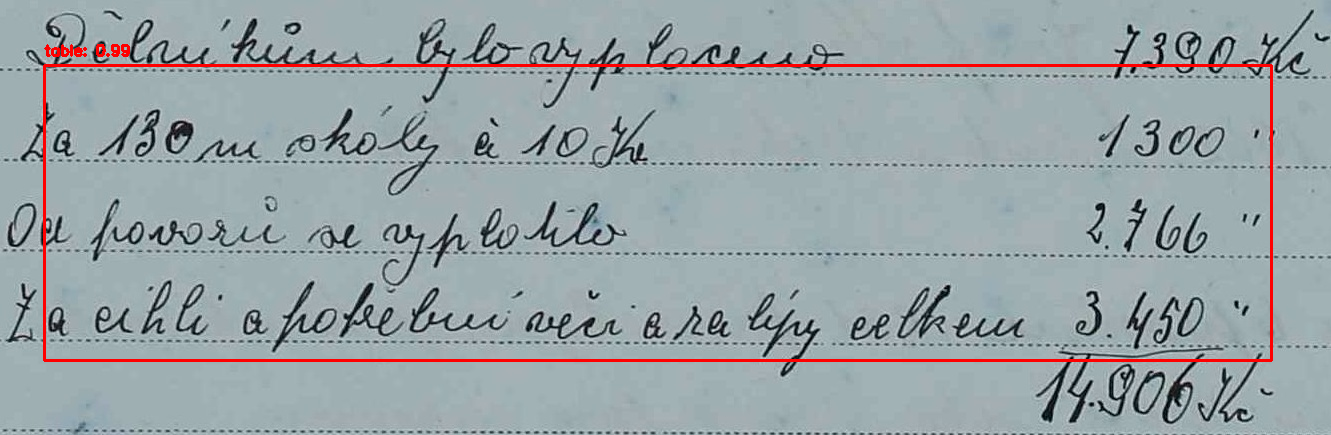 table: 0.99
Dělníkům bylo vyplaceno 7.390 Kč
Za 130 m skály à 10 Kč 1300 "
Od povozů se vyplatilo 2.766 "
Za cihli a potřební věci a za lípy celkem 3.450 "
14.906 Kč